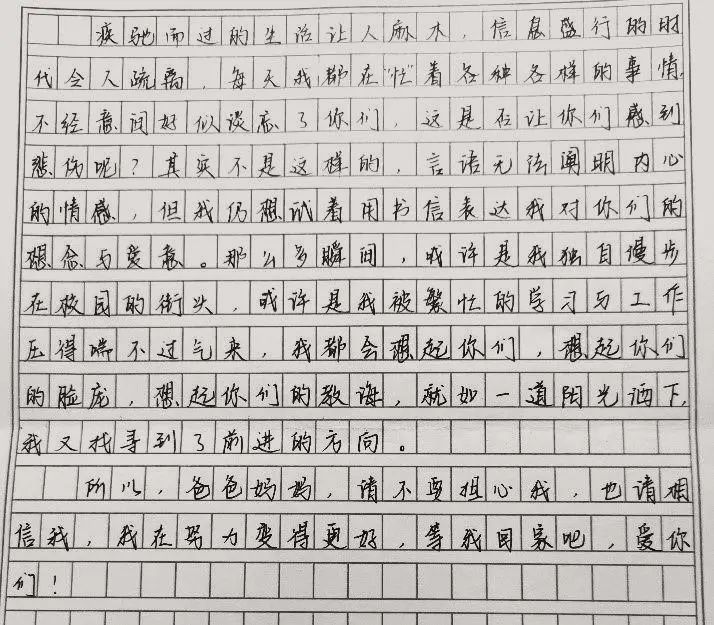 疾驰而过的生活让人麻木，信息盛行的时
代令人疏离，每天我都在"忙"着各种各样的事情，
不经意间好似淡忘了你们，这是否让你们感到
悲伤呢？其实不是这样的，言语无法阐明内心
的情感，但我仍想试着用书信表达我对你们的
想念与爱意。那么多瞬间，或许是我独自漫步
在校园的街头，或许是我被繁忙的学习与工作
压得喘不过气来，我都会想起你们，想起你们
的脸庞，想起你们的教诲，就如一道阳光洒下，
我又找寻到了前进的方向。
所以，爸爸妈妈，请不要担心我，也请相
信我，我在努力变得更好，等我回家吧，爱你
们！